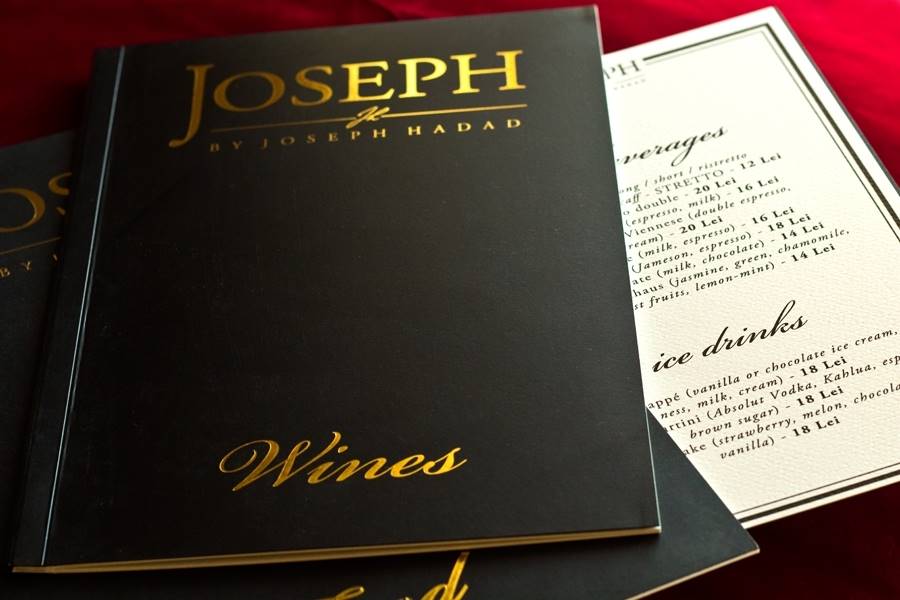 JOSEPH
BY JOSEPH HADAD
Wines
BY
ice drinks
short / ristretto
STRETTO - 12 Lei
double - 20 Lei
(espresso, milk) - 16 Lei
Viennese (double espresso,
- 20 Lei
(milk, espresso) - 16 Lei
(Jameson, espresso) - 18 Lei
(milk, chocolate) - 14 Lei
(jasmine, green, chamomile,
fruits, lemon-mint) - 14 Lei
(vanilla or chocolate ice cream,
milk, cream) - 18 Lei
(Absolut Vodka, Kahlua,
brown sugar) - 18 Lei
(strawberry, melon,
vanilla) - 18 Lei